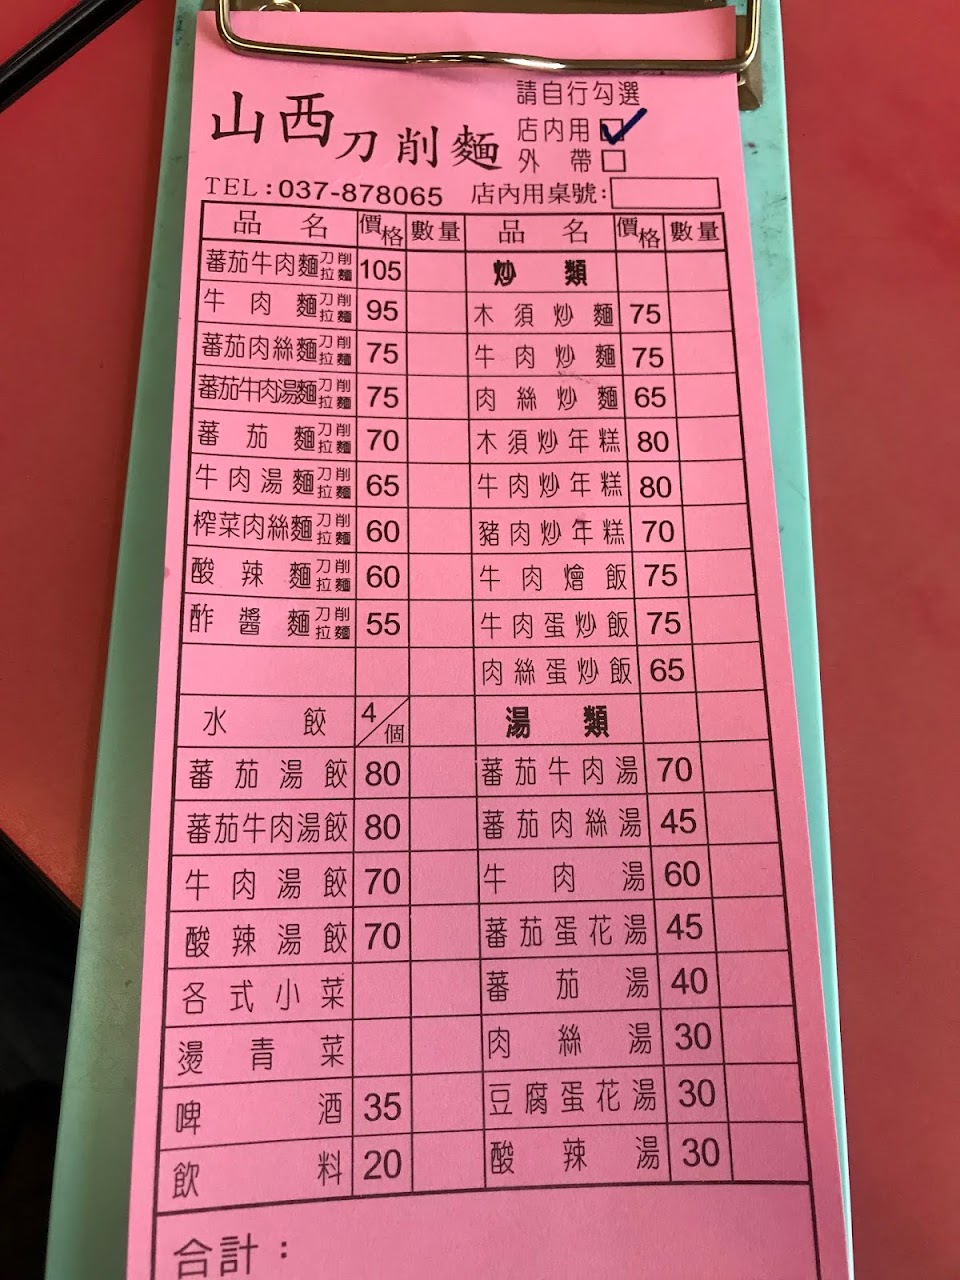 請自行勾選
山西刀削麵
店內用□
外帶□
TEL:037-878065 店內用桌號:
品名 價格 數量 品名 價格 數量
蕃茄牛肉麵 刀削 拉麵 105 炒類
牛肉麵 刀削 拉麵 95 木須炒麵 75
蕃茄肉絲麵 刀削 拉麵 75 牛肉炒麵 75
蕃茄牛肉湯麵 刀削 拉麵 75 肉絲炒麵 65
蕃茄麵 刀削 拉麵 70 木須炒年糕 80
牛肉湯麵 刀削 拉麵 65 牛肉炒年糕 80
榨菜肉絲麵 刀削 拉麵 60 豬肉炒年糕 70
酸辣麵 刀削 拉麵 60 牛肉燴飯 75
酢醬麵 刀削 拉麵 55 牛肉蛋炒飯 75
肉絲蛋炒飯 65
水餃 4/個 湯類
蕃茄湯餃 80 蕃茄牛肉湯 70
蕃茄牛肉湯餃 80 蕃茄肉絲湯 45
牛肉湯餃 70 牛肉湯 60
酸辣湯餃 70 蕃茄蛋花湯 45
各式小菜 蕃茄湯 40
燙青菜 肉絲湯 30
啤酒 35 豆腐蛋花湯 30
飲料 20 酸辣湯 30
合計：